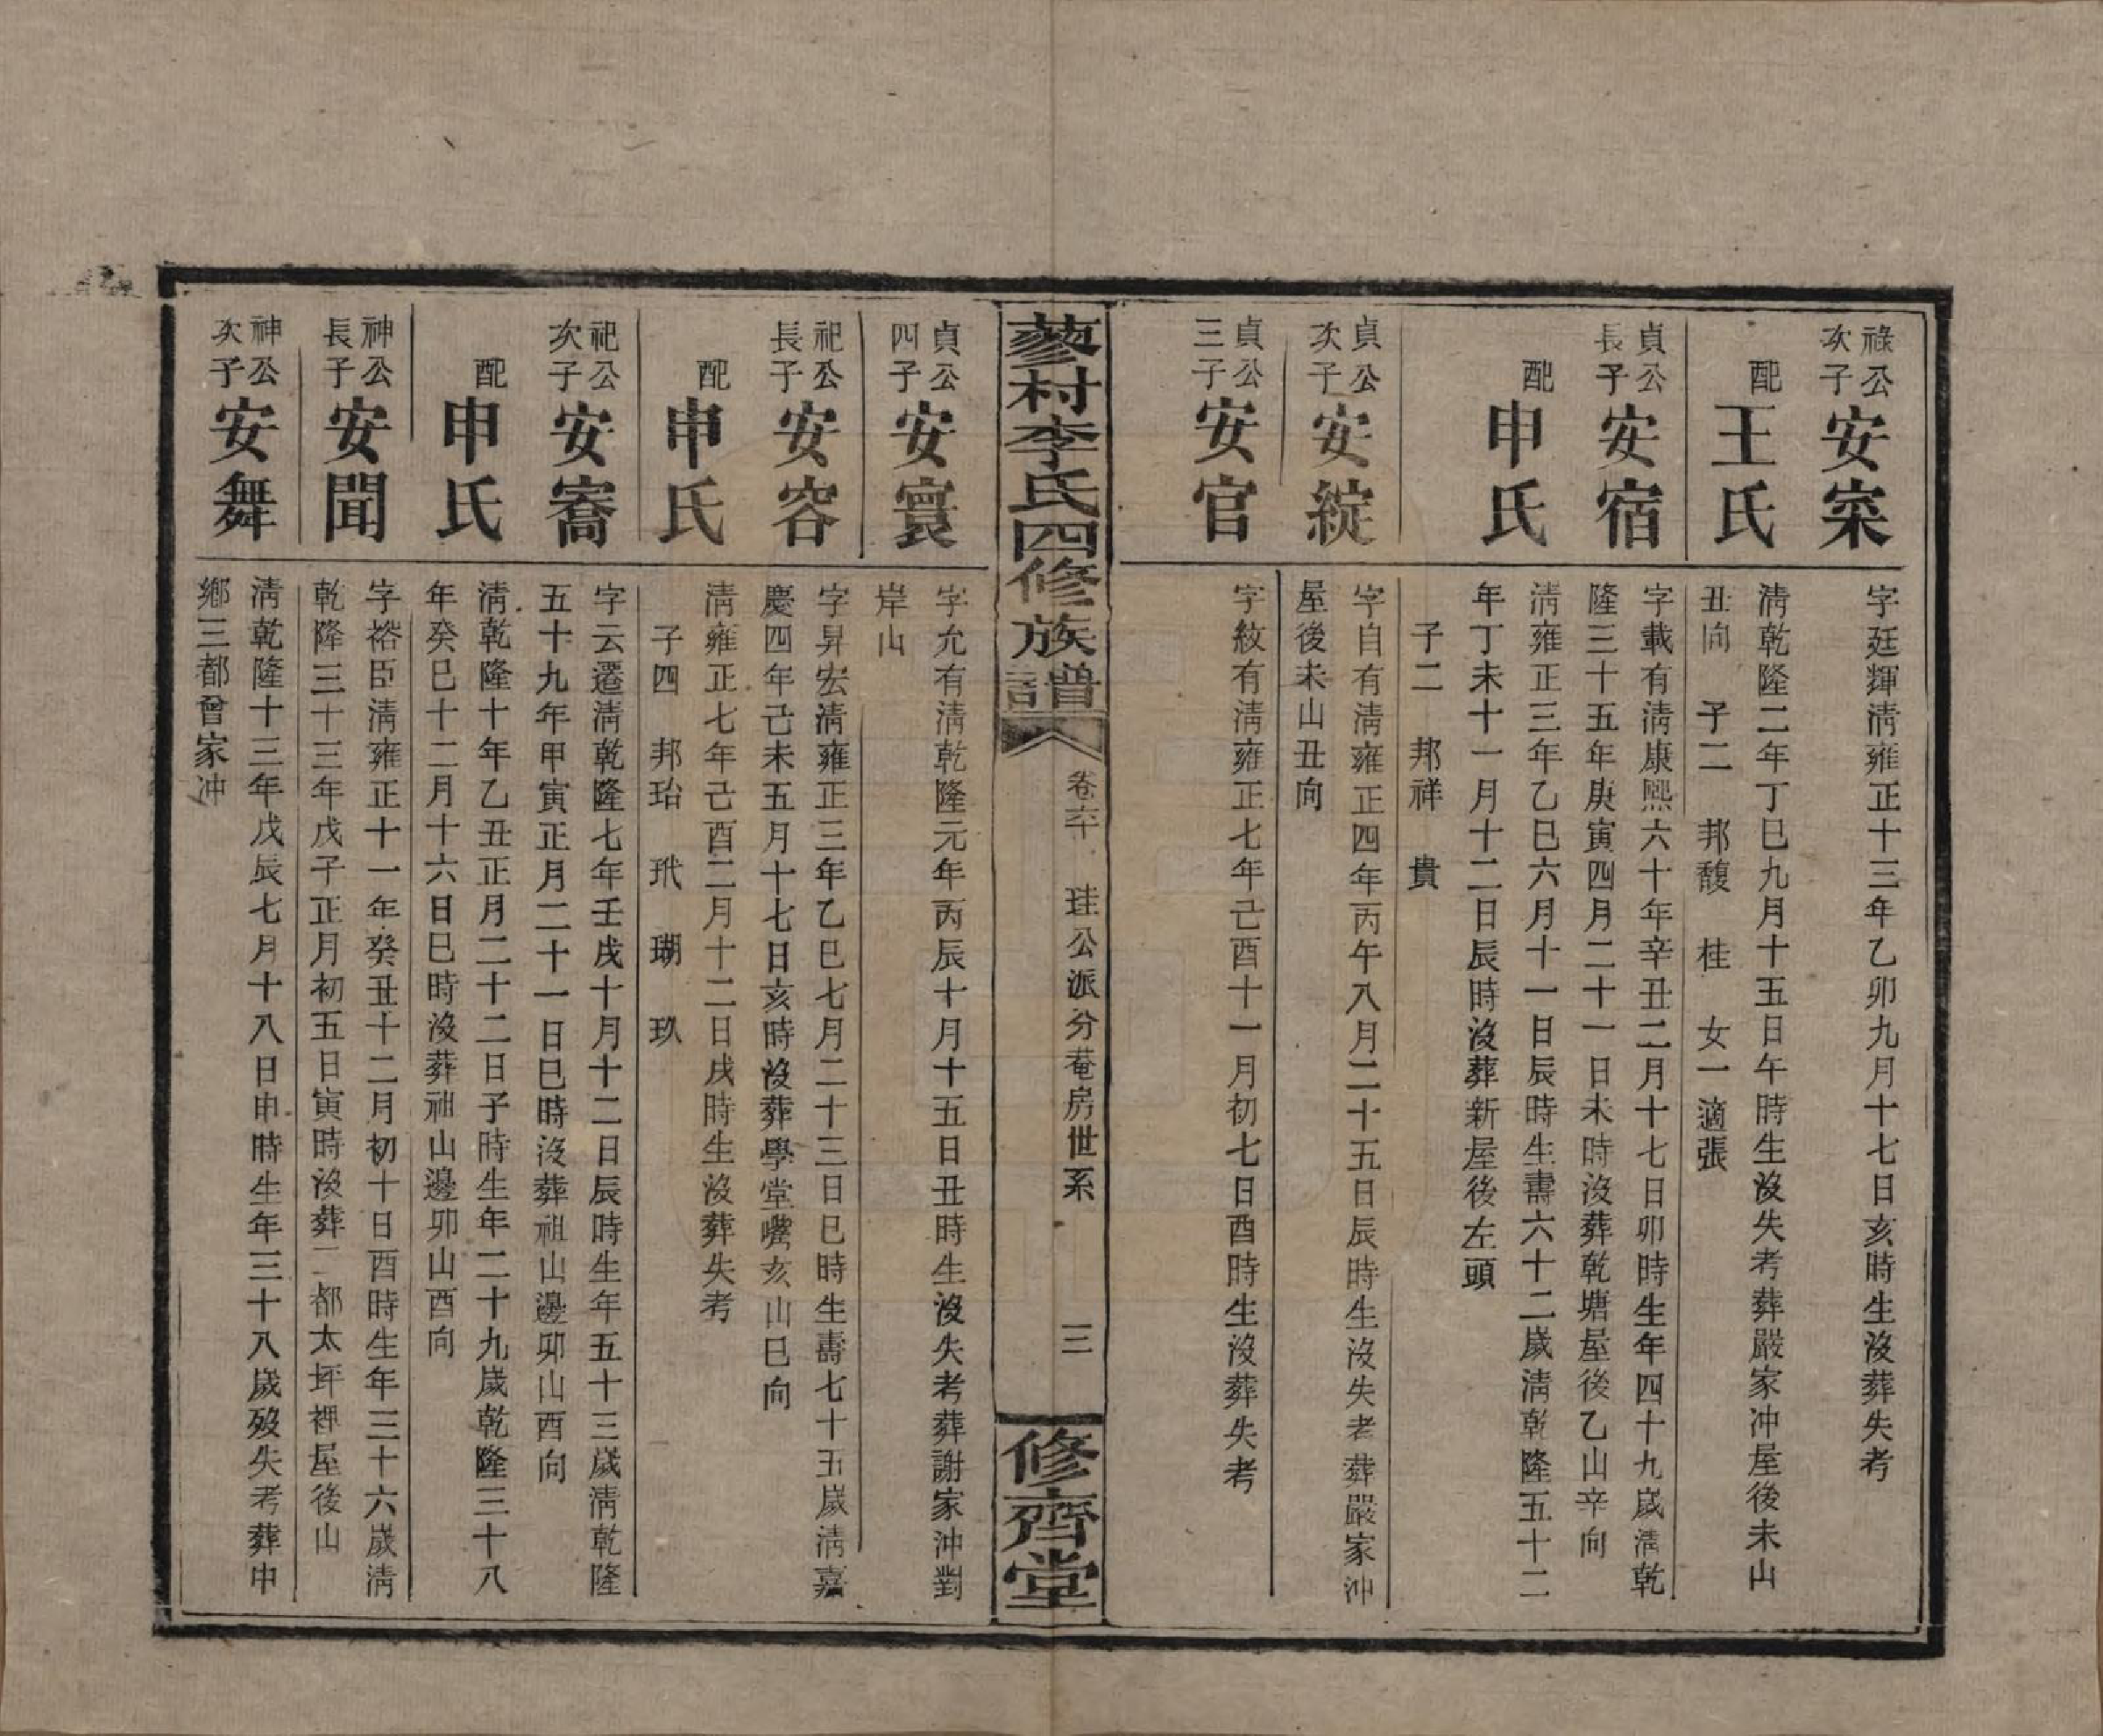 祿公次子
安寀
字廷輝淸雍正十三年乙卯九月十七日亥時生沒葬失考
配
王氏
淸乾隆二年丁巳九月十五日午時生沒失考葬嚴家冲屋後未山
丑向 子二 邦馥 桂 女一適張
貞公長子
安宿
字載有淸康熙六十年辛丑二月十七日卯時生年四十九歲淸乾
隆三十五年庚寅四月二十一日未時沒葬乾塘屋後乙山辛向
配
申氏
淸雍正三年乙巳六月十一日辰時生壽六十二歲淸乾隆五十二
年丁未十一月十二日辰時沒葬新屋後左頭
子二 邦祥 貴
貞公次子
安綻
字自有淸雍正四年丙午八月二十五日辰時生沒失考葬嚴家冲
屋後未山丑向
貞公三子
安官
字紋有淸雍正七年己酉十一月初七日酉時生沒葬失考
蓼村李氏四修族譜
卷六十 珪公派分菴房世系 三
修齊堂
貞公四子
安寰
字允有淸乾隆元年丙辰十月十五日丑時生沒失考葬謝家沖對
岸山
祀公長子
安容
字昇宏淸雍正三年乙巳七月二十三日巳時生壽七十五歲淸嘉
慶四年己未五月十七日亥時沒葬學堂嘴亥山巳向
配
申氏
淸雍正七年己酉二月十二日戌時生沒葬失考
子四 邦珆 玳 瑚 玖
祀公次子
安寯
字云遷淸乾隆七年壬戌十月十二日辰時生年五十三歲淸乾隆
五十九年甲寅正月二十一日巳時沒葬祖山邊卯山酉向
配
申氏
淸乾隆十年乙丑正月二十二日子時生年二十九歲乾隆三十八
年癸巳十二月十六日巳時沒葬祖山邊卯山酉向
神公長子
安聞
字裕臣淸雍正十一年癸丑十二月初十日酉時生年三十六歲淸
乾隆三十三年戊子正月初五日寅時沒葬二都太坪裡屋後山
神公次子
安舞
淸乾隆十三年戊辰七月十八日申時生年三十八歲歿失考葬中
鄉三都曾家冲